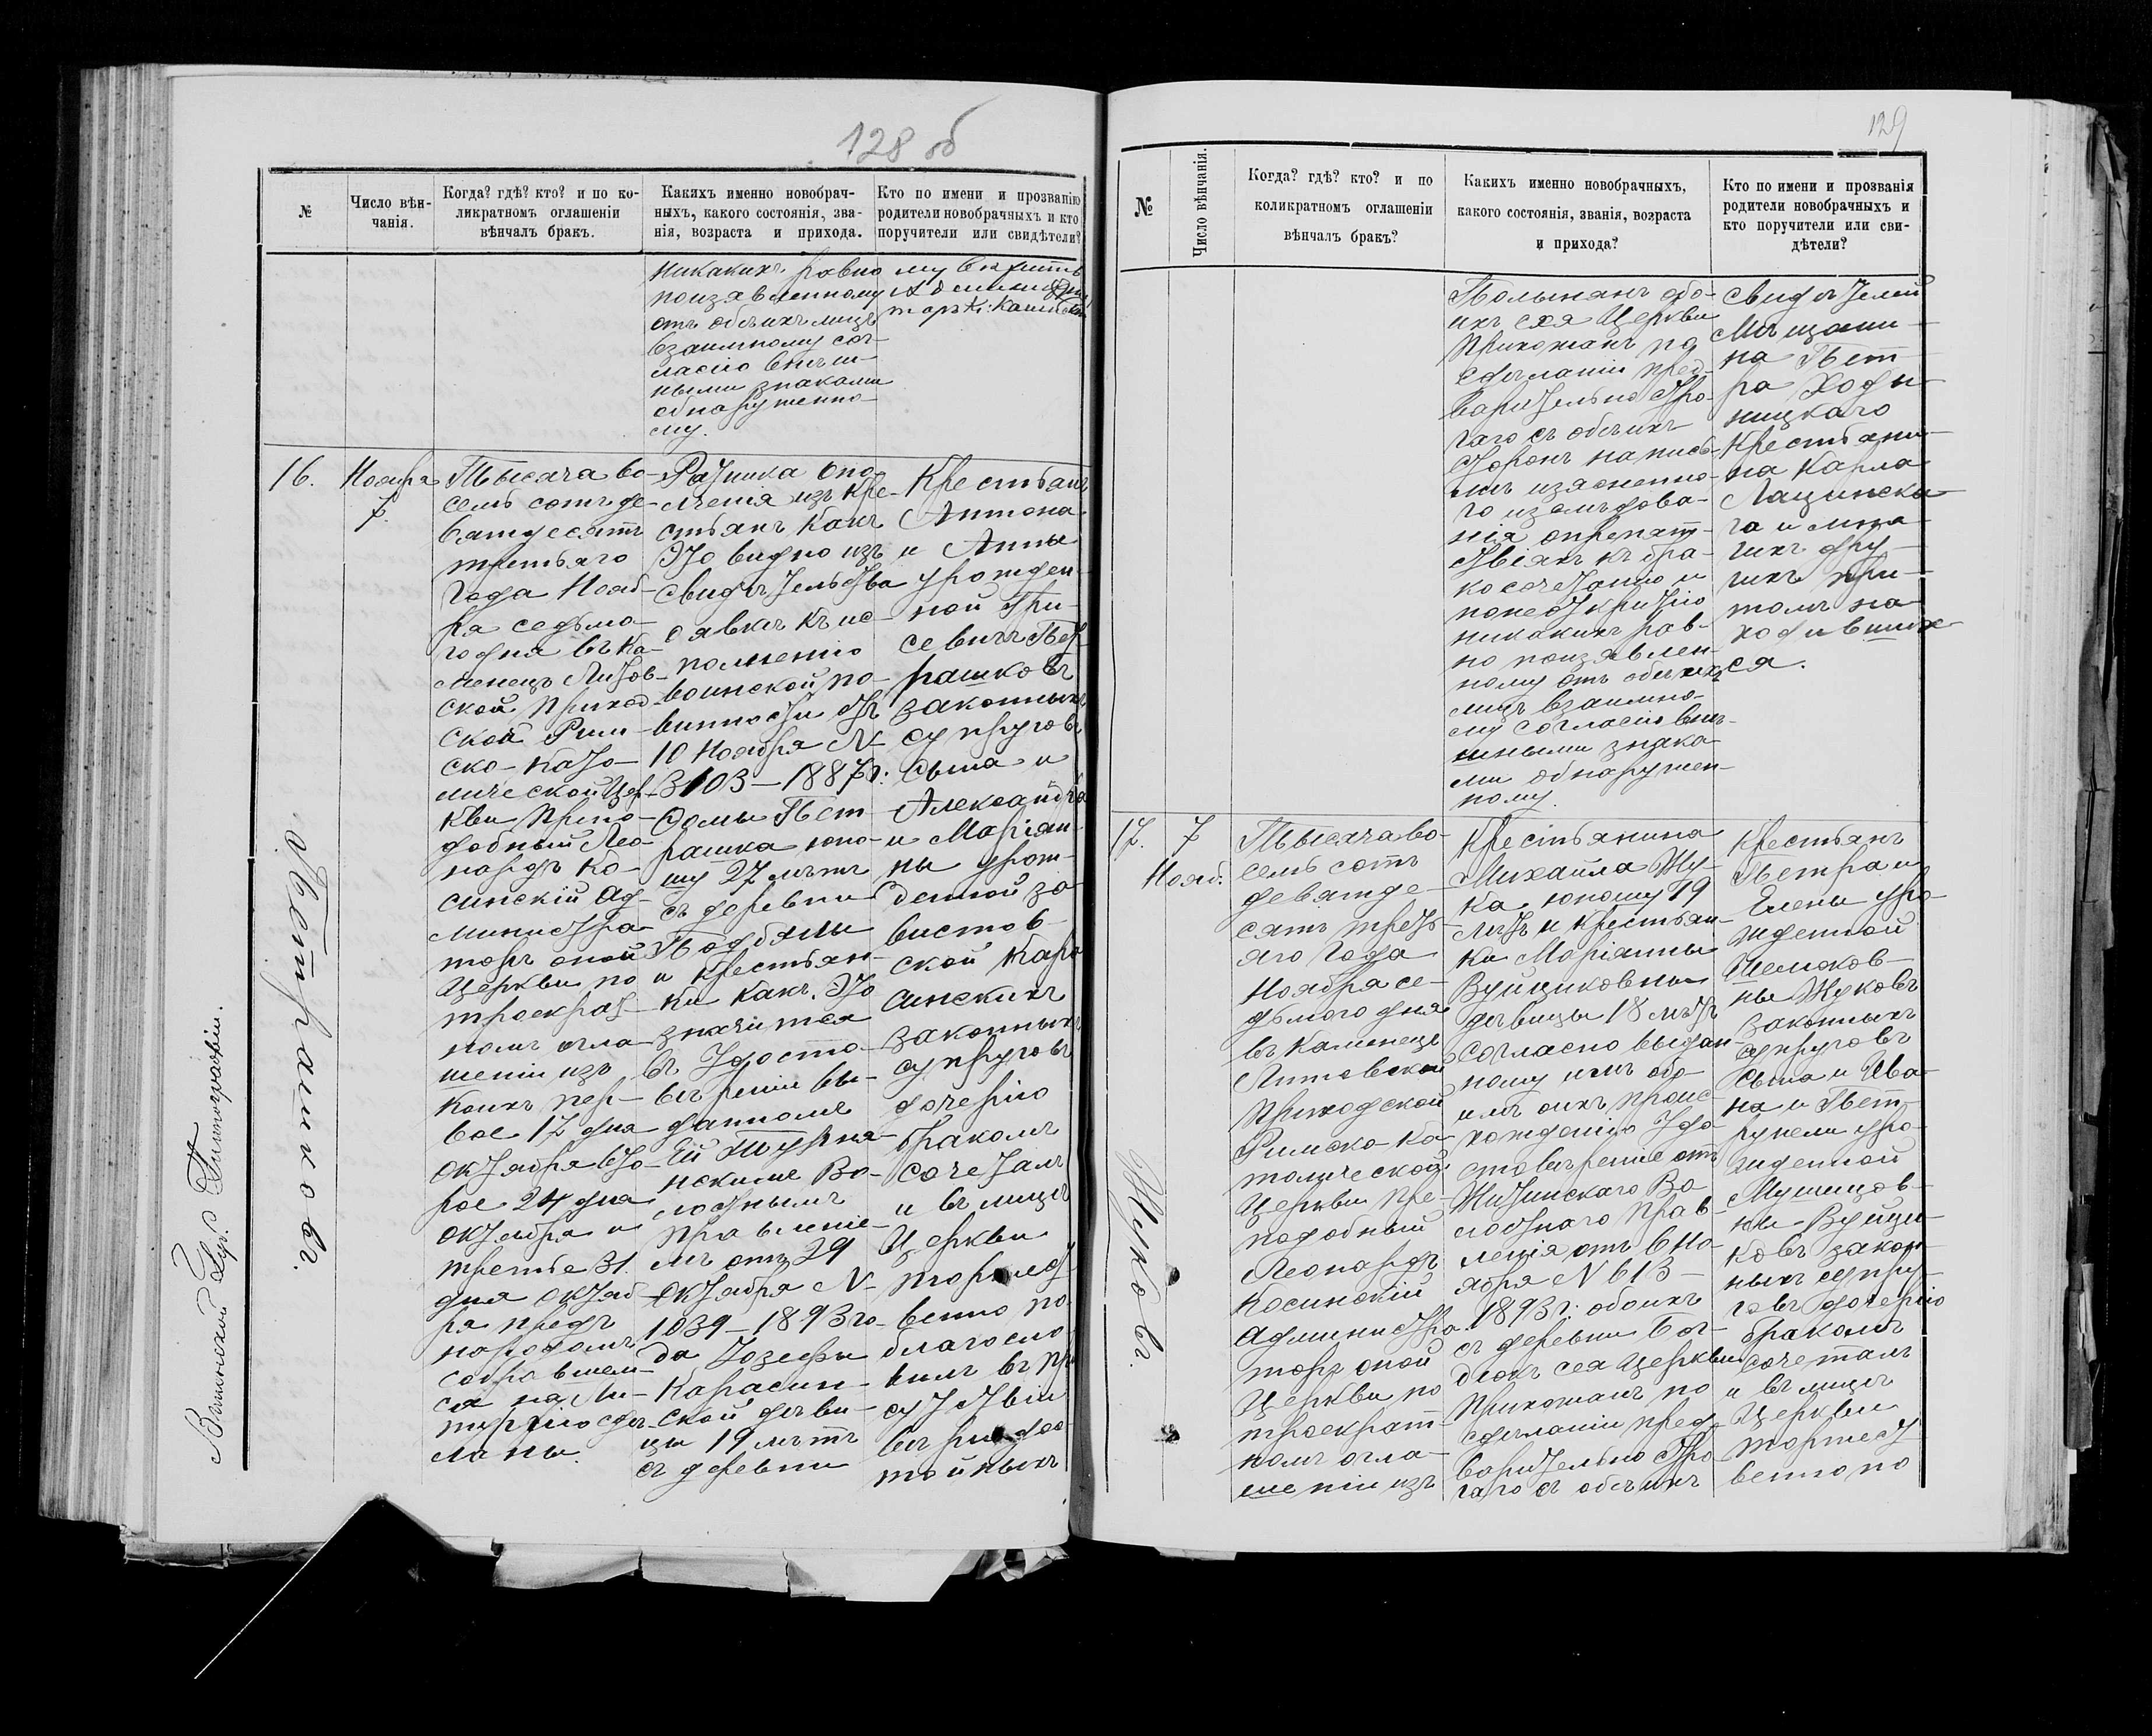 128 об
№
Число вѣн-
чанія.
Когда? гдѣ? кто? и по ко-
ликратномъ оглашеніи
вѣнчалъ бракъ.
Какихъ именно новобрач-
ныхъ, какого состоянія, зва-
нія, возраста и прихода.
Кто по имени и прозванію
родители новобрачныхъ и кто
поручители или свидѣтели?
никакихъ ровно
поизявленному
отъ обѣихъ лицъ
взаимному сог-
ласію внѣш-
ными знаками
обнаруженно-
му.
16.
Ноября
7.
Тысяча во-
семь сотъ де-
вятдесятъ
третьяго
года Нояб-
ря седьмо-
го дня въ Ка-
менецъ Литов-
ской приход-
ской Рим-
ско-Като-
лической Цер-
кви Препо-
добный Лео-
нардъ Ко-
синскій Ад-
министра-
торъ оной
Церкви по
троекрат-
номъ огла-
шеніи изъ
коихъ пер-
вое 17 дня
Октября вто-
рое 24 дня
Октября и
третье 31
дня Октяб-
ря предъ
народомъ
собравшем-
ся на Ли-
тургію сдѣ-
ланы.
Ратника опо-
лченія изъ кре-
стьянъ какъ
это видно изъ
свидѣтельства
о явкѣ къ ис-
полненію
воинской по-
винности отъ
10 Ноября N
3103 — 1887 г.
Ѳомы Пет-
рашка юно-
шу 27 лѣтъ
съ деревни
Подбялы
и крестьян-
ки какъ это
значится
въ Удосто-
вѣреніи вы-
данноме
ей
Во-
лостнымъ
правленіе-
мъ отъ 29
Октября N
1039 — 1893 го-
да Іозефы
Карасин-
ской дѣви-
цы 19 лѣтъ
съ деревни
Крестьянъ
Антона
и Анны
урожден-
ной Гри-
севичъ Пет-
рашковъ
законныхъ
супруговъ
сына и
Александра
и Маріан-
ны урож-
денной за-
вистов-
ской Кара-
синскихъ
законныхъ
супруговъ
дочерію
бракомъ
сочеталъ
и въ лицѣ
Церкви
торжест-
венно по-
благосло-
вилъ въ при-
сутствіи
вѣры дос-
тойныхъ
Петрашковъ.
Виленской Губ. Типографіи.
129
№
Число вѣнчанія.
Когда? гдѣ? кто? и по
коликратномъ оглашеніи
вѣнчалъ бракъ?
Какихъ именно новобрачныхъ,
какого состоянія, званія, возраста
и прихода?
Кто по имени и прозванія
родители новобрачныхъ и
кто поручители или сви-
дѣтели?
обо-
ихъ сея Церкви
прихожанъ по
сдѣланіи пред-
варительно стро-
гаго съ обѣихъ
сторонъ на пись-
мѣ изясненно-
го изслѣдова-
нія опрепят-
ствіяхъ къ бра-
косочетанію и
понеоткрытію
никакихъ ров-
но поизявлен-
ному отъ обѣихъ
лицъ взаимно-
му согласію внѣ-
шными знака-
ми обнаружен-
ному.
свидѣтелей
Мѣщани-
на Пет-
ра Ходы-
ницкаго
Крестьяни-
на Карла
Лащинска-
го и мно-
гихъ дру-
гихъ при-
томъ на-
ходившихъ-
ся.
17.
7
Нояб.
Тысяча во-
семь сотъ
девятде-
сятъ треть-
яго года
Ноября се-
дьмого дня
въ Каменецъ
Литовской
Приходской
Римско-Ка-
толической
Церкви Пре-
подобный
Леонардъ
Косинскій
Администра-
торъ оной
Церкви по
троекрат-
номъ огла-
шеніи изъ
Крестьянина
Михаила Жу-
ка юношу 19
лѣтъ и крестьян-
ки Маріанны
Вуйциковны
дѣвицы 18 лѣтъ
согласно выдан-
ному имъ обо-
имъ ихъ проис-
хожденію Удо-
стовѣреніе отъ
Во-
лостнаго прав-
ленія отъ 6 Но-
ября N 613 —
1893 г. обоихъ
съ деревни
сея Церкви
прихожанъ по
сдѣланіи пред-
варительно стро-
гаго съ обѣихъ
Крестьянъ
Петра и
Елены уро-
жденной
ны Жуковъ
законныхъ
супруговъ
сына и Ива-
на и Пет-
рунели уро-
жденной
ки Вуйци-
ковъ закон-
ныхъ супру-
говъ дочерію
бракомъ
сочеталъ
и въ лицѣ
Церкви
торжест-
венно по
Жуковъ.